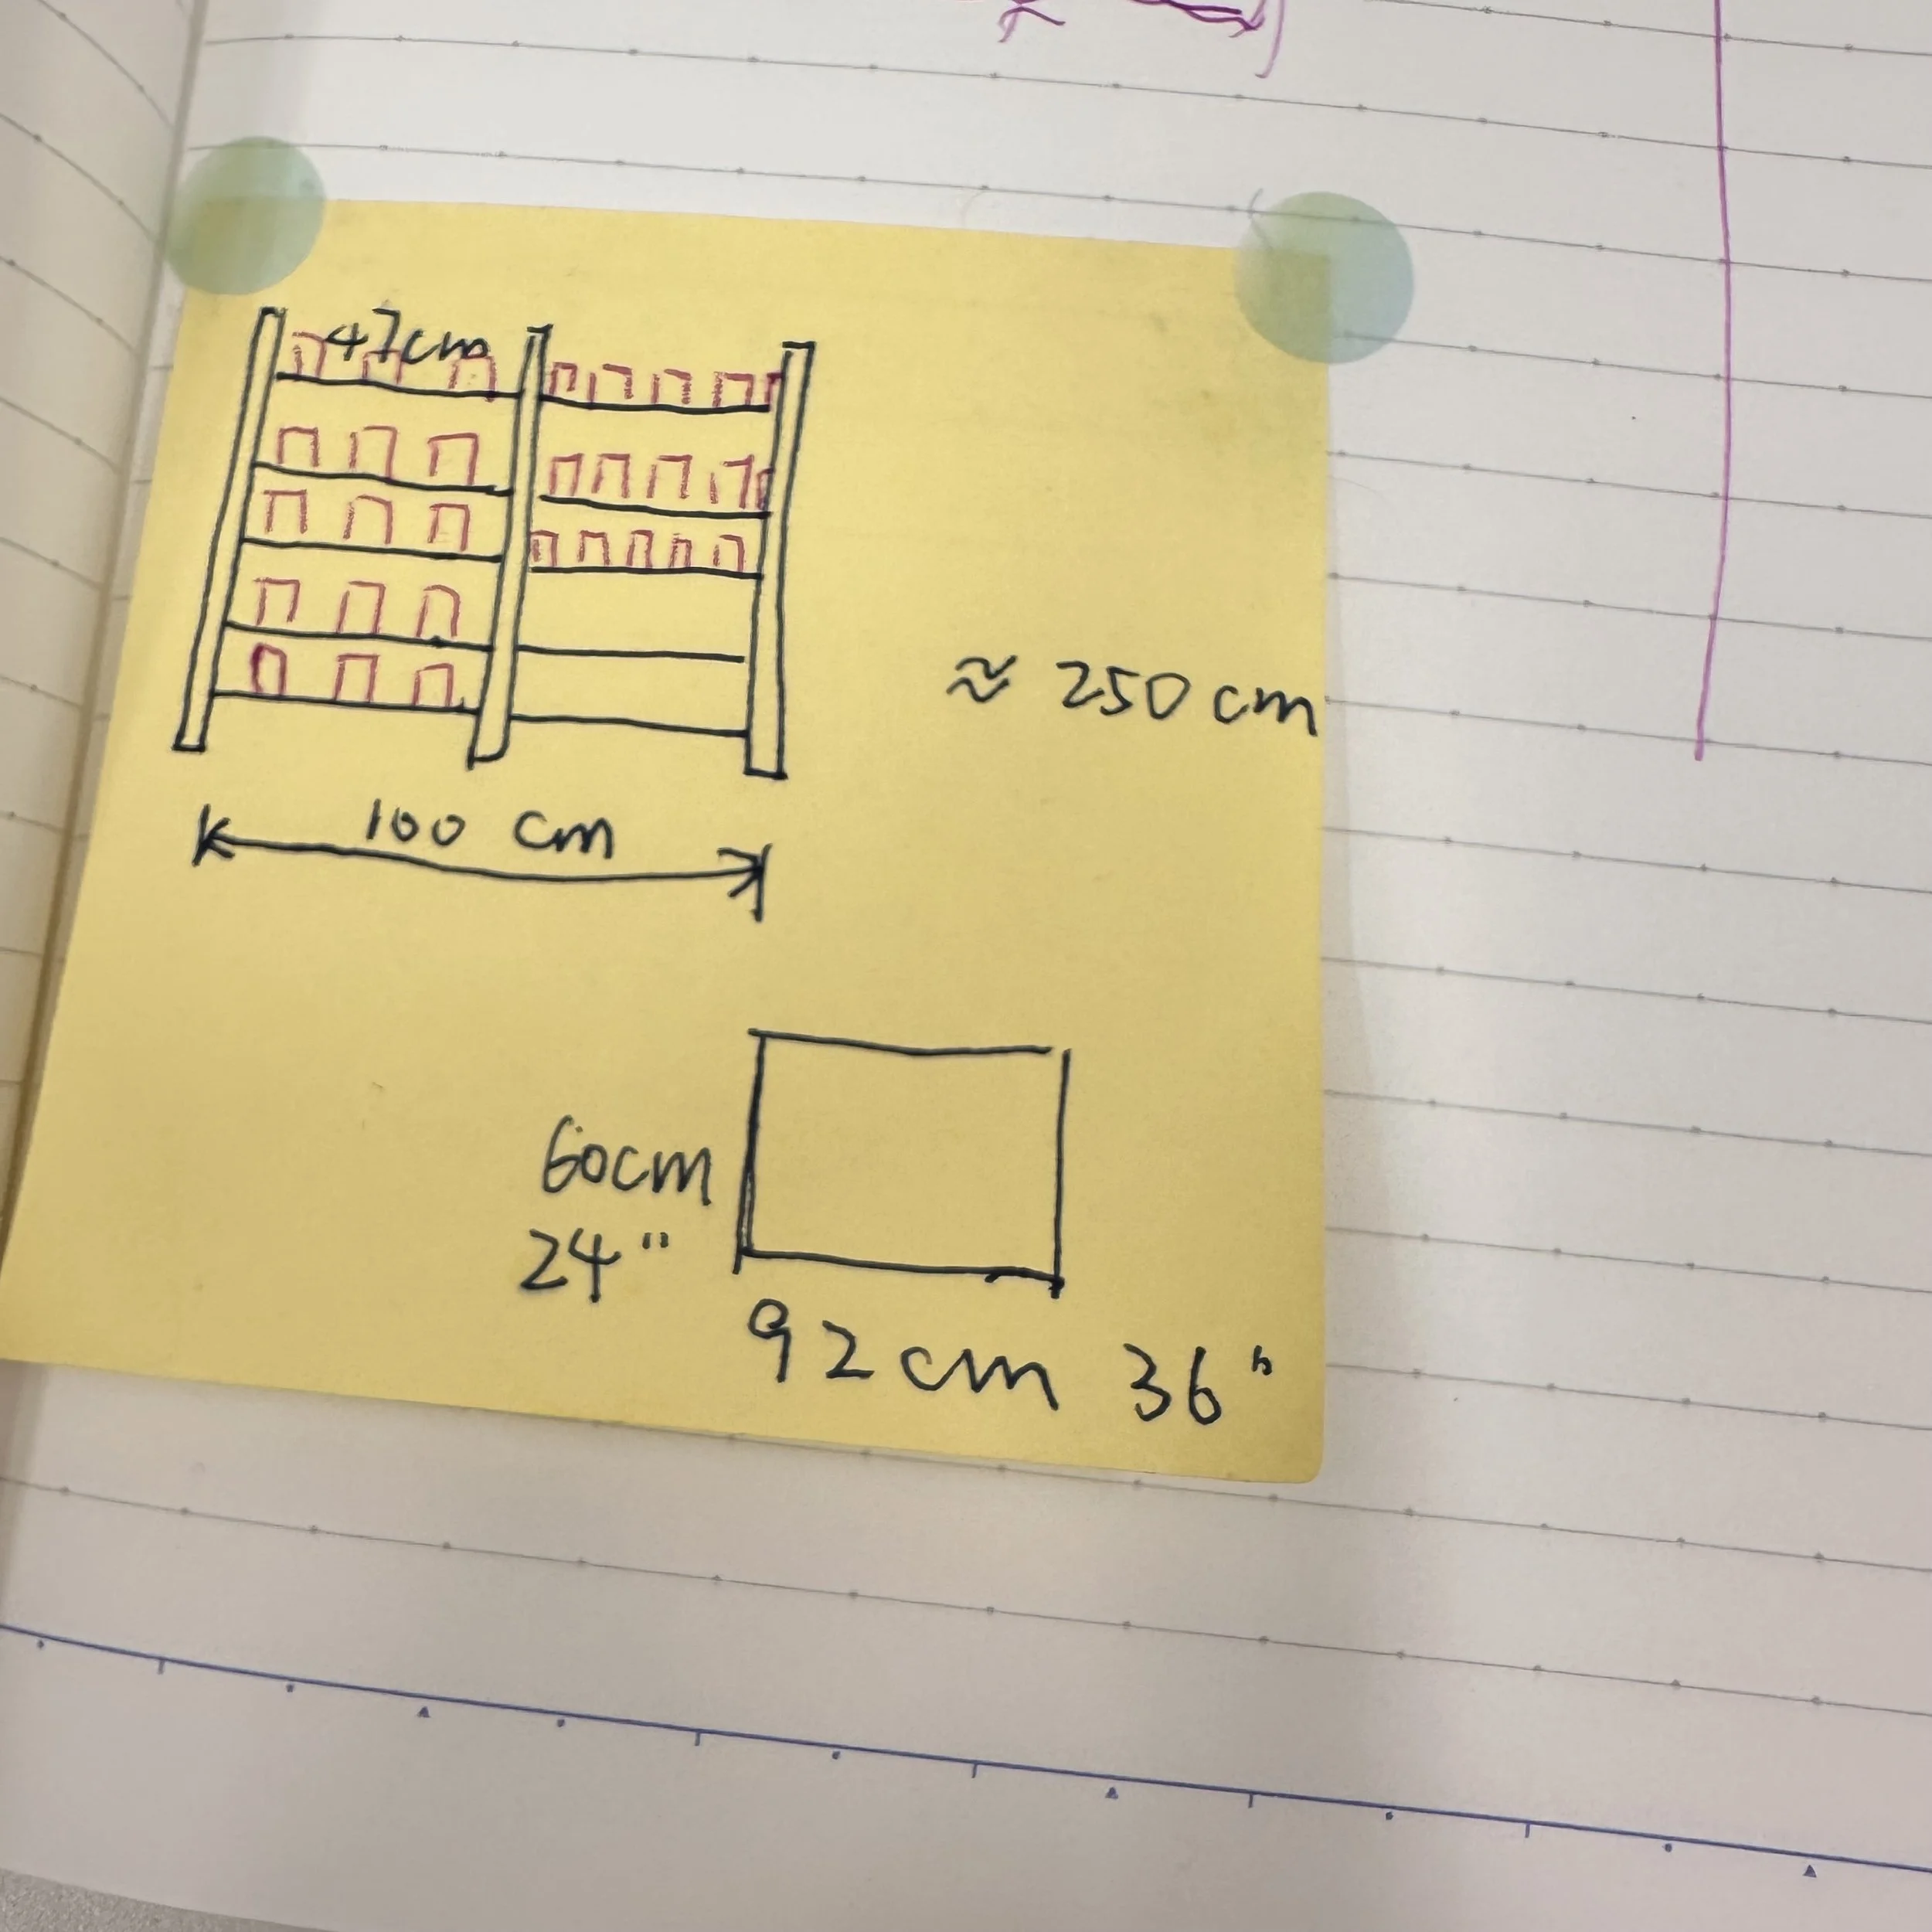 47cm
≈ 250 cm
100 cm
60cm
24"
92cm 36"